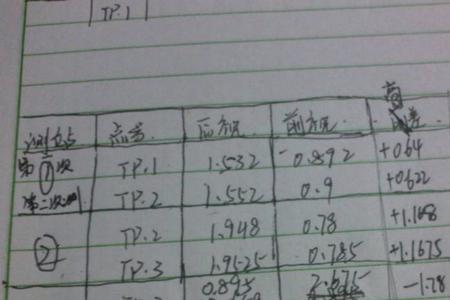 TP.1
测点 点号 后视 前视 高差
第①次 TP.1 1.532 0.892 +0.64
第二次 TP.2 1.552 0.9 +0.622
② TP.2 1.948 0.78 +1.168
TP.3 1.9525 0.785 +1.1675
0.895 -1.78